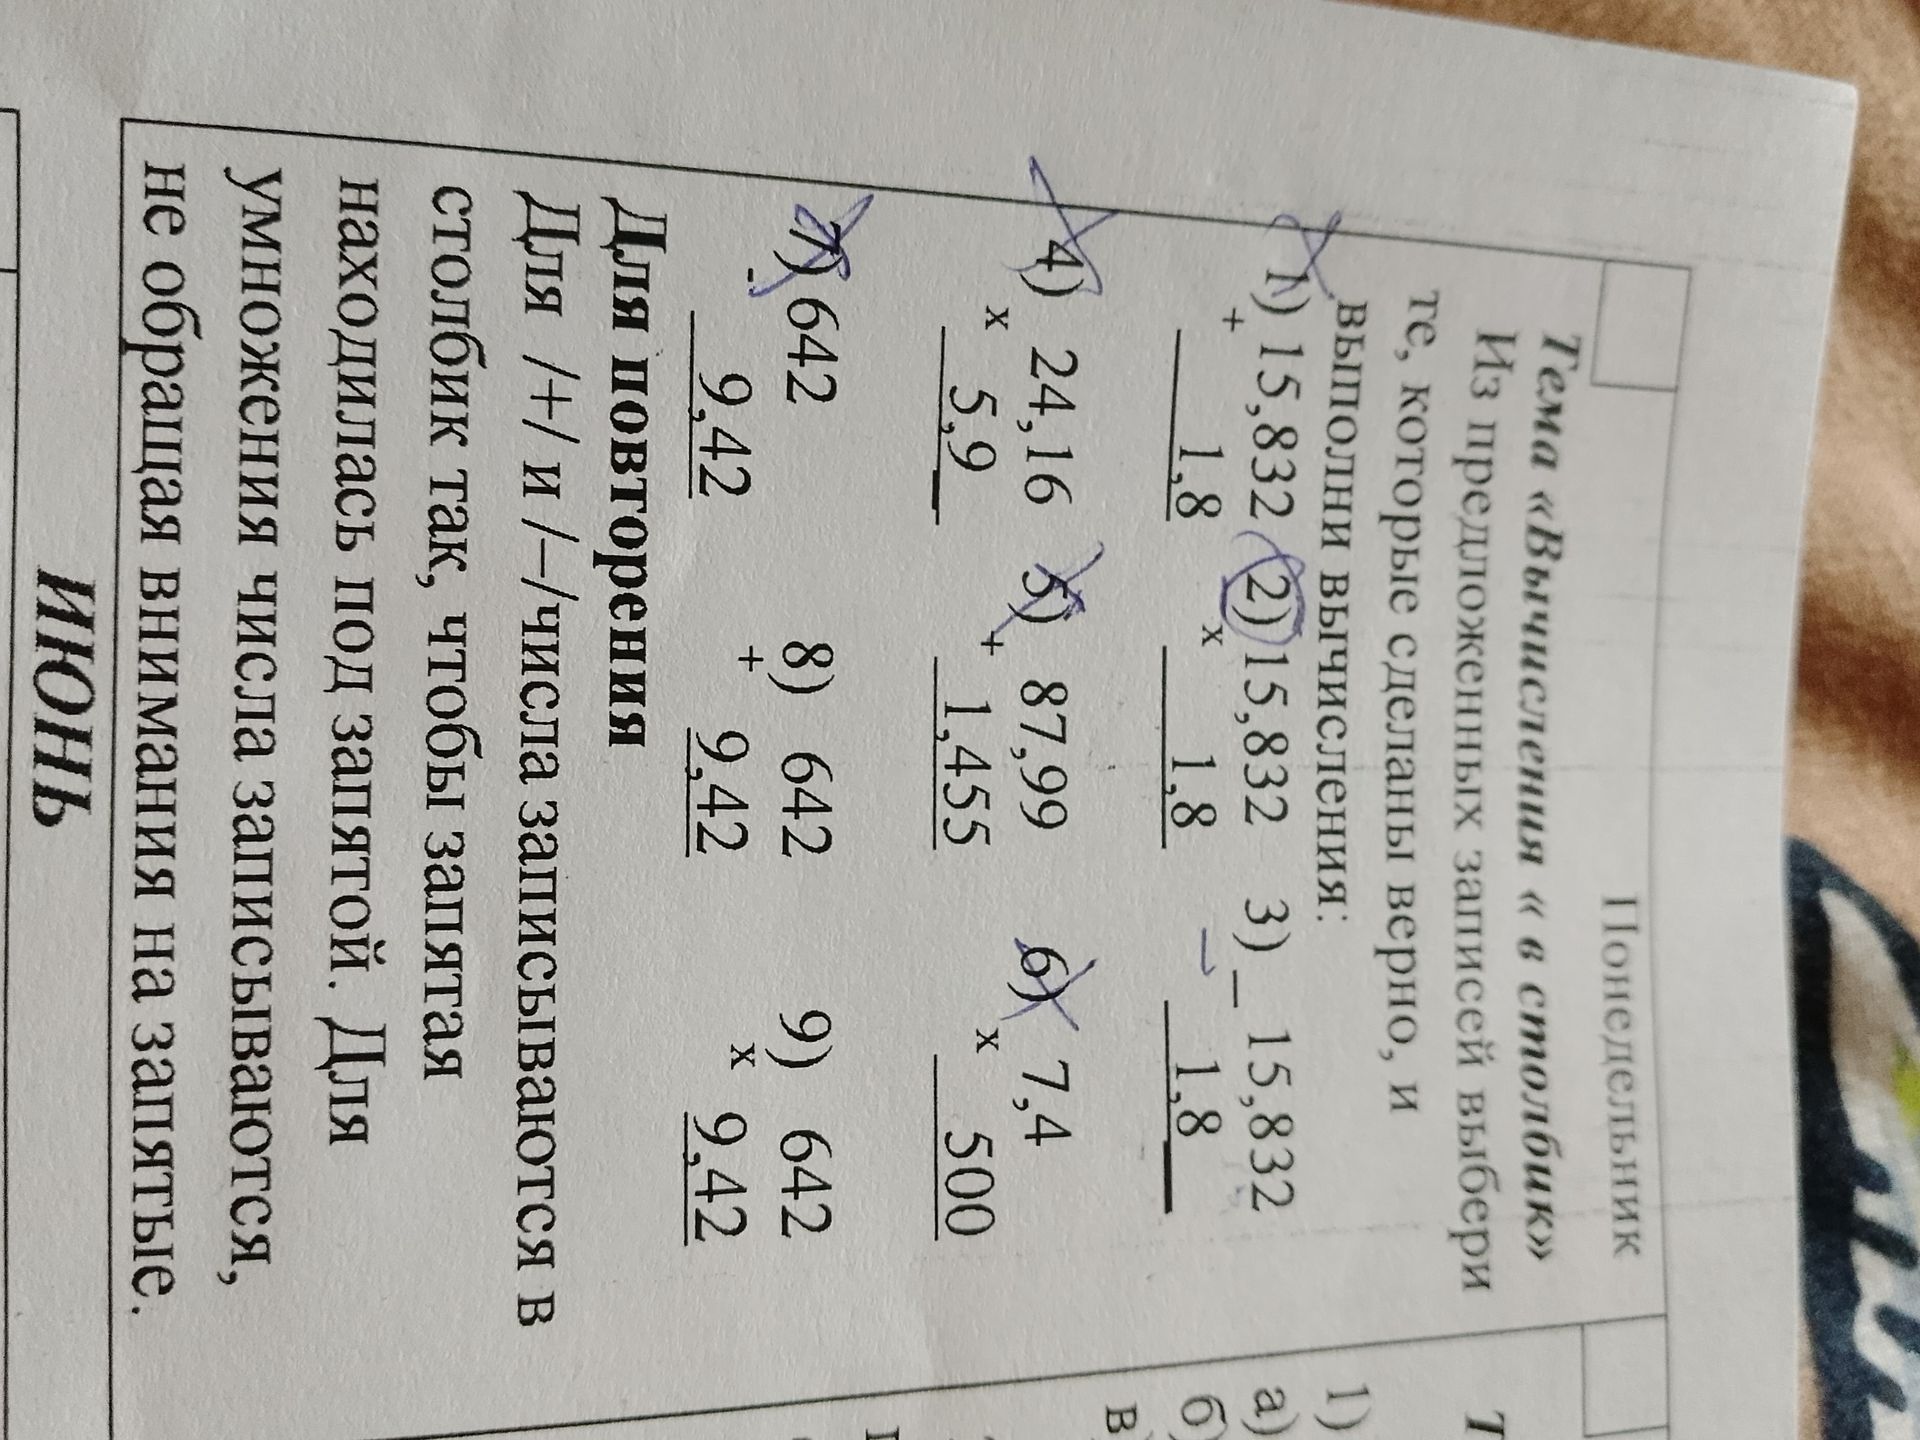 Понедельник
Тема «Вычисления « в столбик»
Из предложенных записей выбери
те, которые сделаны верно, и
выполни вычисления:
1) 15,832 2) 15,832 3) _ 15,832
+ 1,8 x 1,8 1,8
4) 24,16 5) 87,99 6) 7,4
x 5,9 + 1,455 x 500
7) 642 8) 642 9) 642
- 9,42 + 9,42 x 9,42
Для повторения
Для /+/ и /–/числа записываются в
столбик так, чтобы запятая
находилась под запятой. Для
умножения числа записываются,
не обращая внимания на запятые.
ИЮНЬ
Т
1)
а)
б)
в)